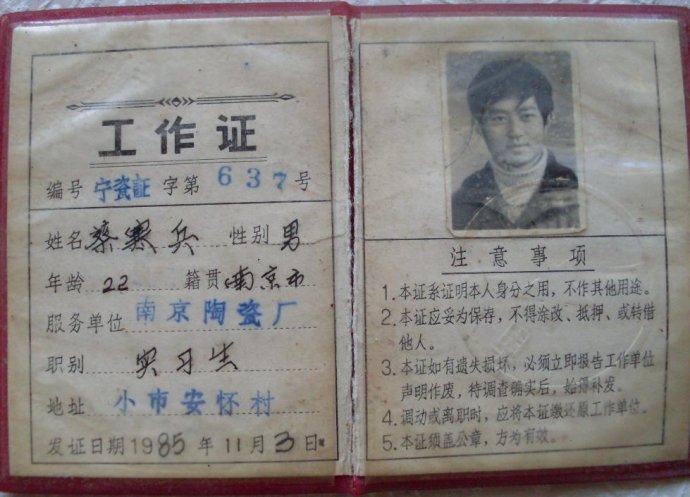 工作证
编号 宁瓷証 字第 637 号
姓名 蔡寒兵 性别 男
年龄 22 籍贯 南京市
服务单位 南京陶瓷厂
职别 实习生
地址 小市安怀村
发证日期1985年11月3日
注意事项
1. 本证系证明本人身分之用，不作其他用途。
2. 本证应妥为保存，不得涂改、抵押、或转借
他人。
3. 本证如有遗失损坏，必须立即报告工作单位
声明作废，待调查确实后，始得补发。
4. 调动或离职时，应将本证缴还原工作单位。
5. 本证须盖公章，方为有效。